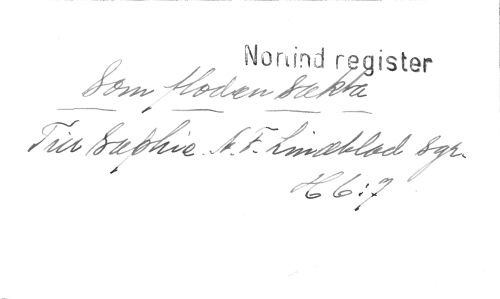 Nonind register
Som floden sakta
Till Sophie. A. F. Lindblad sgr.
H 6:7